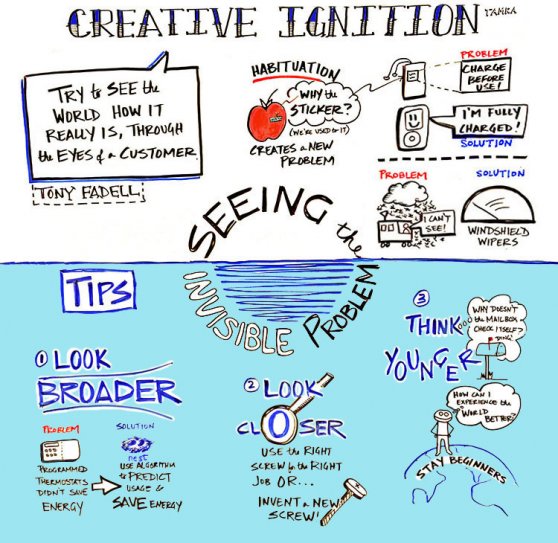 CREATIVE IGNITION
TRY to SEE the
WORLD HOW IT
REALLY IS, THROUGH
the EYES of a CUSTOMER.
TONY FADELL
HABITUATION
WHY the
STICKER?
(WE'RE USED to IT)
CREATES a NEW
PROBLEM
PROBLEM
CHARGE
BEFORE
USE!
I'M FULLY
CHARGED!
SOLUTION
PROBLEM
I CAN'T
SEE!
SOLUTION
WINDSHIELD
WIPERS
SEEING the
INVISIBLE PROBLEM
TIPS
1 LOOK
BROADER
PROBLEM
PROGRAMMED
THERMOSTATS
DIDN'T SAVE
ENERGY
SOLUTION
nest
USE ALGORITHM
to PREDICT
USAGE &
SAVE ENERGY
2 LOOK
CLOSER
USE the RIGHT
SCREW for the RIGHT
JOB OR...
INVENT a NEW
SCREW!
3
THINK
YOUNGER
WHY DOESN'T
the MAILBOX
CHECK ITSELF?
DING!
HOW CAN I
EXPERIENCE the
WORLD
BETTER?
STAY BEGINNERS